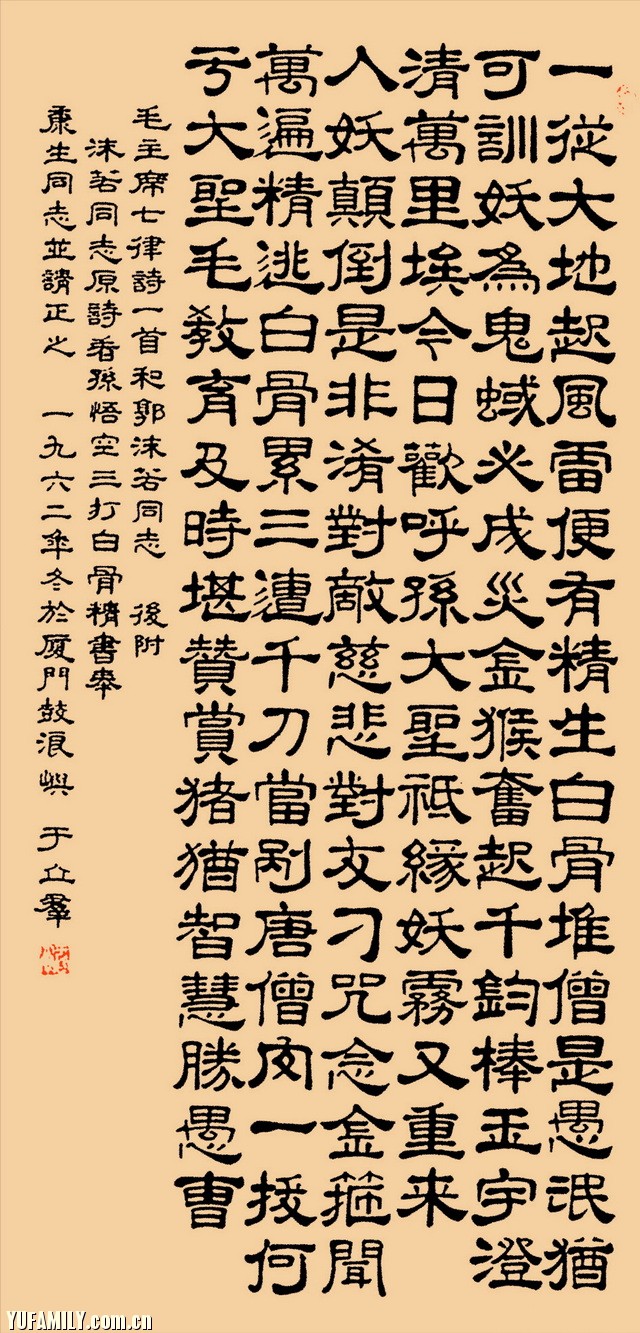 一從大地起風雷便有精生白骨堆僧是愚氓猶
可訓妖為鬼蜮必成災金猴奮起千鈞棒玉宇澄
清萬里埃今日歡呼孫大聖祇緣妖霧又重来
人妖顛倒是非淆對敵慈悲對友刁咒念金箍聞
萬遍精逃白骨累三遭千刀當剮唐僧肉一拔何
亏大聖毛教育及時堪贊賞猪猶智慧勝愚曹
毛主席七律詩一首和郭沫若同志 後附
沫若同志原詩看孫悟空三打白骨精書奉
康生同志並請正之 一九六二年冬於厦門鼓浪嶼 于立羣
YUFAMILY.com.cn